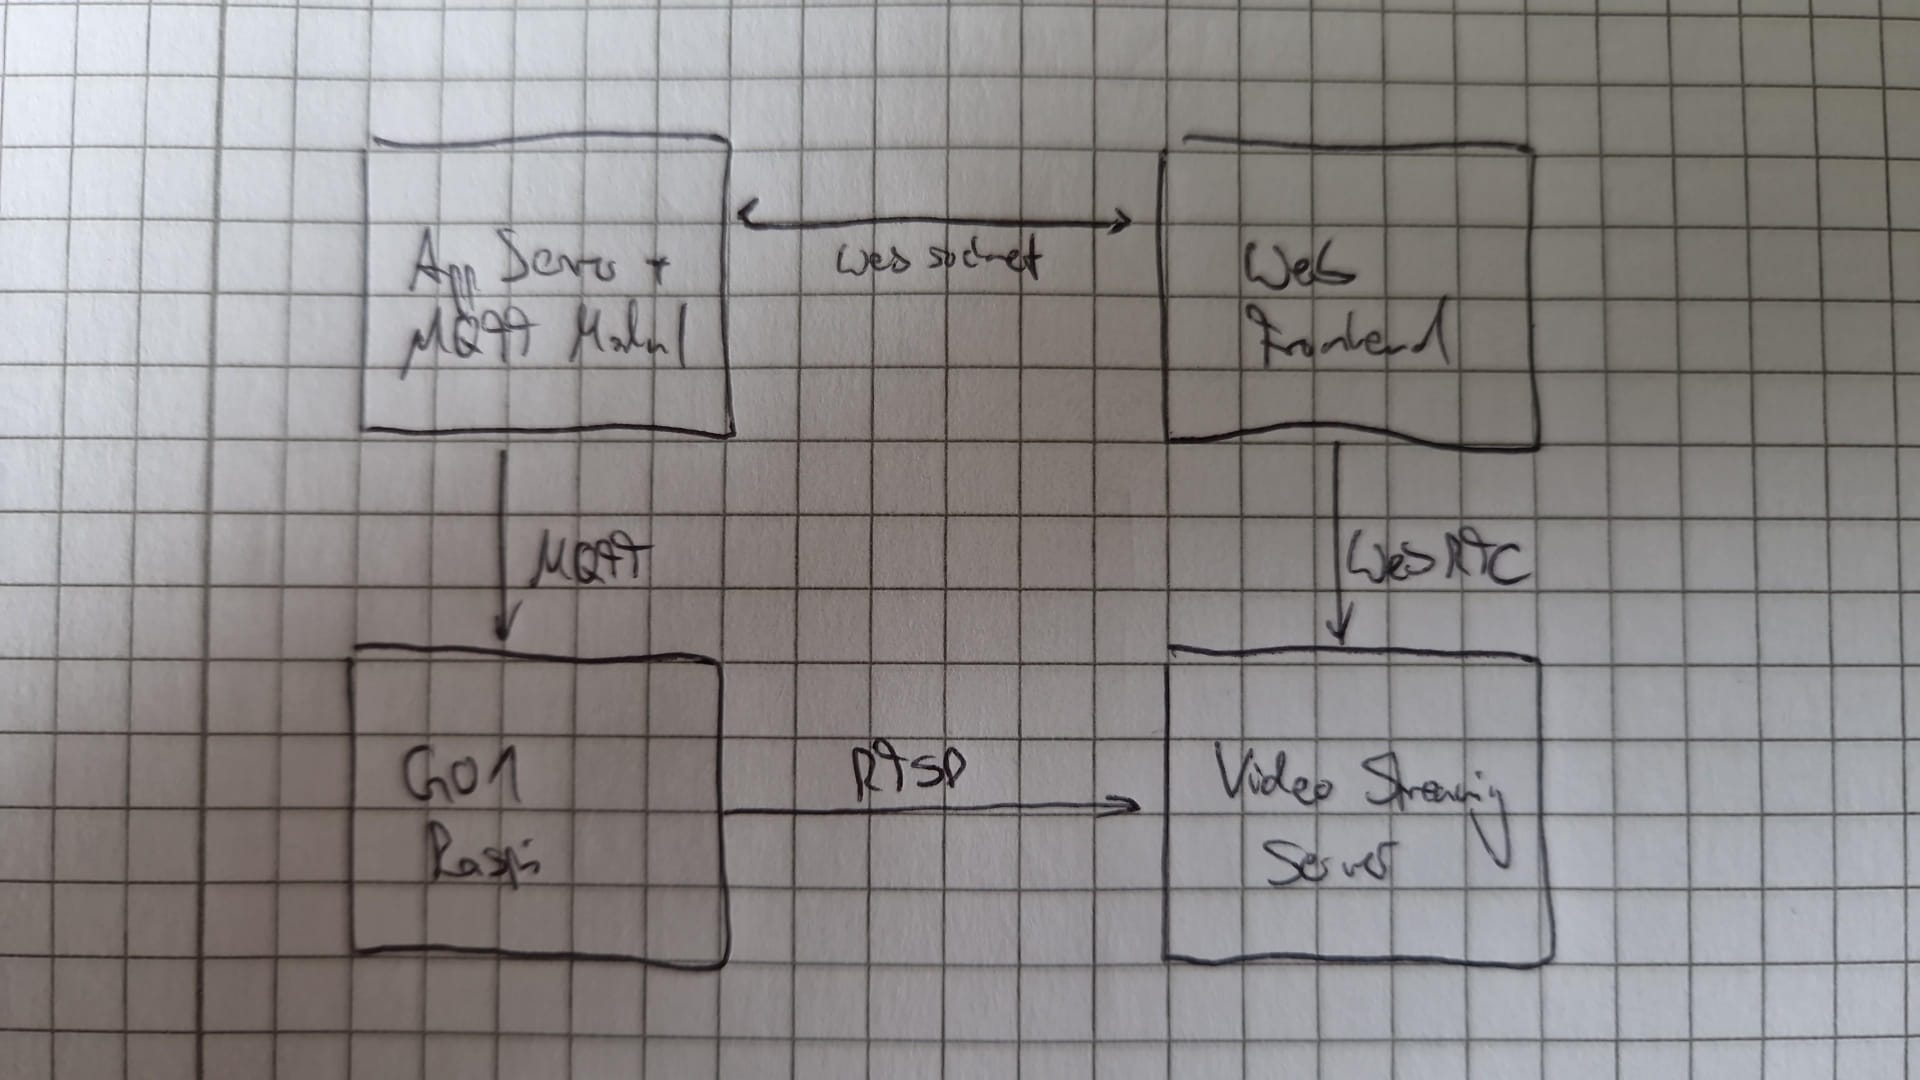 App Server +
MQTT
Websocket
Web
Frontend
MQTT
WebRTC
GO1
Raspi
RTSP
Video Streaming
Server